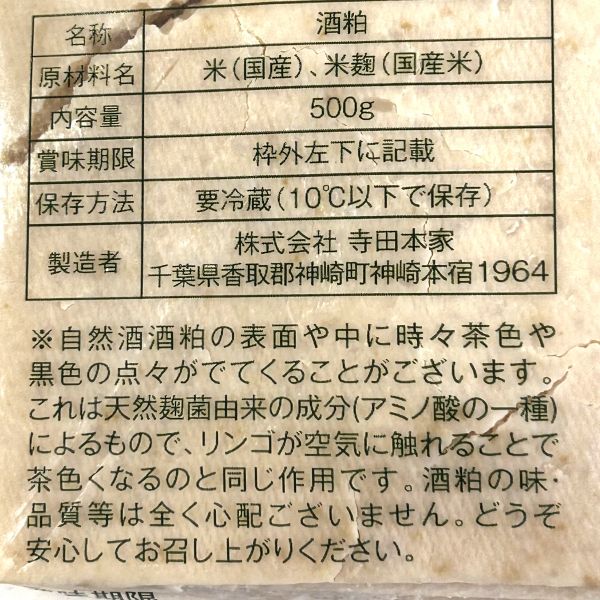 名称 酒粕
原材料名 米(国産)、米麹(国産米)
内容量 500g
賞味期限 枠外左下に記載
保存方法 要冷蔵(10℃以下で保存)
製造者 株式会社 寺田本家
千葉県香取郡神崎町神崎本宿1964
※自然酒酒粕の表面や中に時々茶色や
黒色の点々がでてくることがございます。
これは天然麹菌由来の成分(アミノ酸の一種)
によるもので、リンゴが空気に触れることで
茶色くなるのと同じ作用です。酒粕の味・
品質等は全く心配ございません。どうぞ
安心してお召し上がりください。